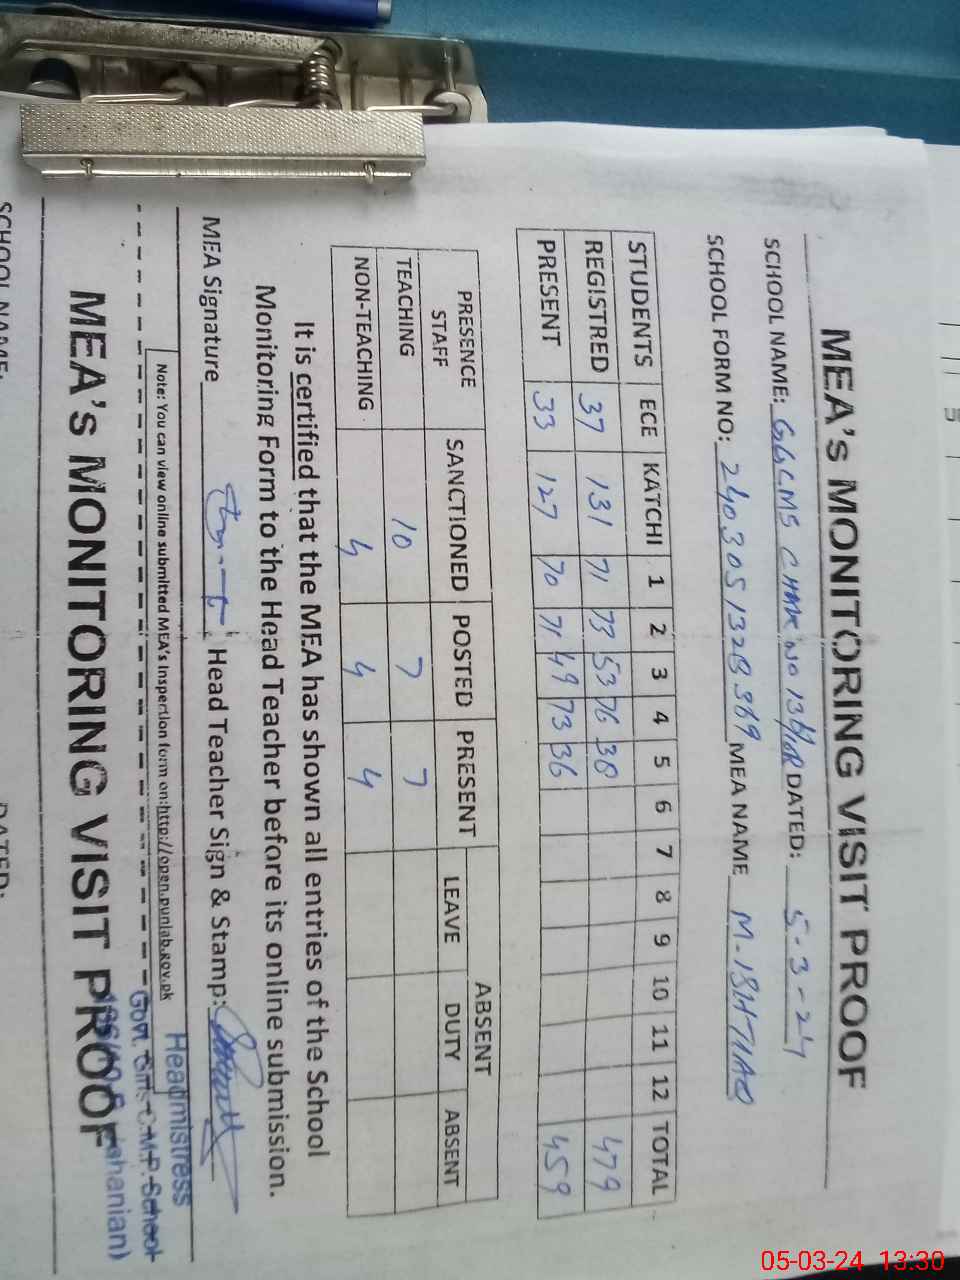 MEA'S MONITORING VISIT PROOF
SCHOOL NAME: GGCMS CHAK NO DATED: 5-3-24
SCHOOL FORM NO: MEA NAME M. ISHTIAQ
STUDENTS ECE KATCHI 1 2 3 4 5 6 7 8 9 10 11 12 TOTAL
REGISTRED 37 131 71 73 53 76 38 479
PRESENT 33 127 70 71 49 73 36 459
PRESENCE STAFF SANCTIONED POSTED PRESENT ABSENT
LEAVE DUTY ABSENT
TEACHING 10 7 7
NON-TEACHING 4 4 4
It is certified that the MEA has shown all entries of the School
Monitoring Form to the Head Teacher before its online submission.
MEA Signature Head Teacher Sign & Stamp:
Headmistress
Govt. Girls C.M.P. School
Note: You can view online submitted MEA's Inspection form on:http://open.punjab.gov.pk
MEA'S MONITORING VISIT PROOF
SCHOOL NAME: DATED:
05-03-24 13:30